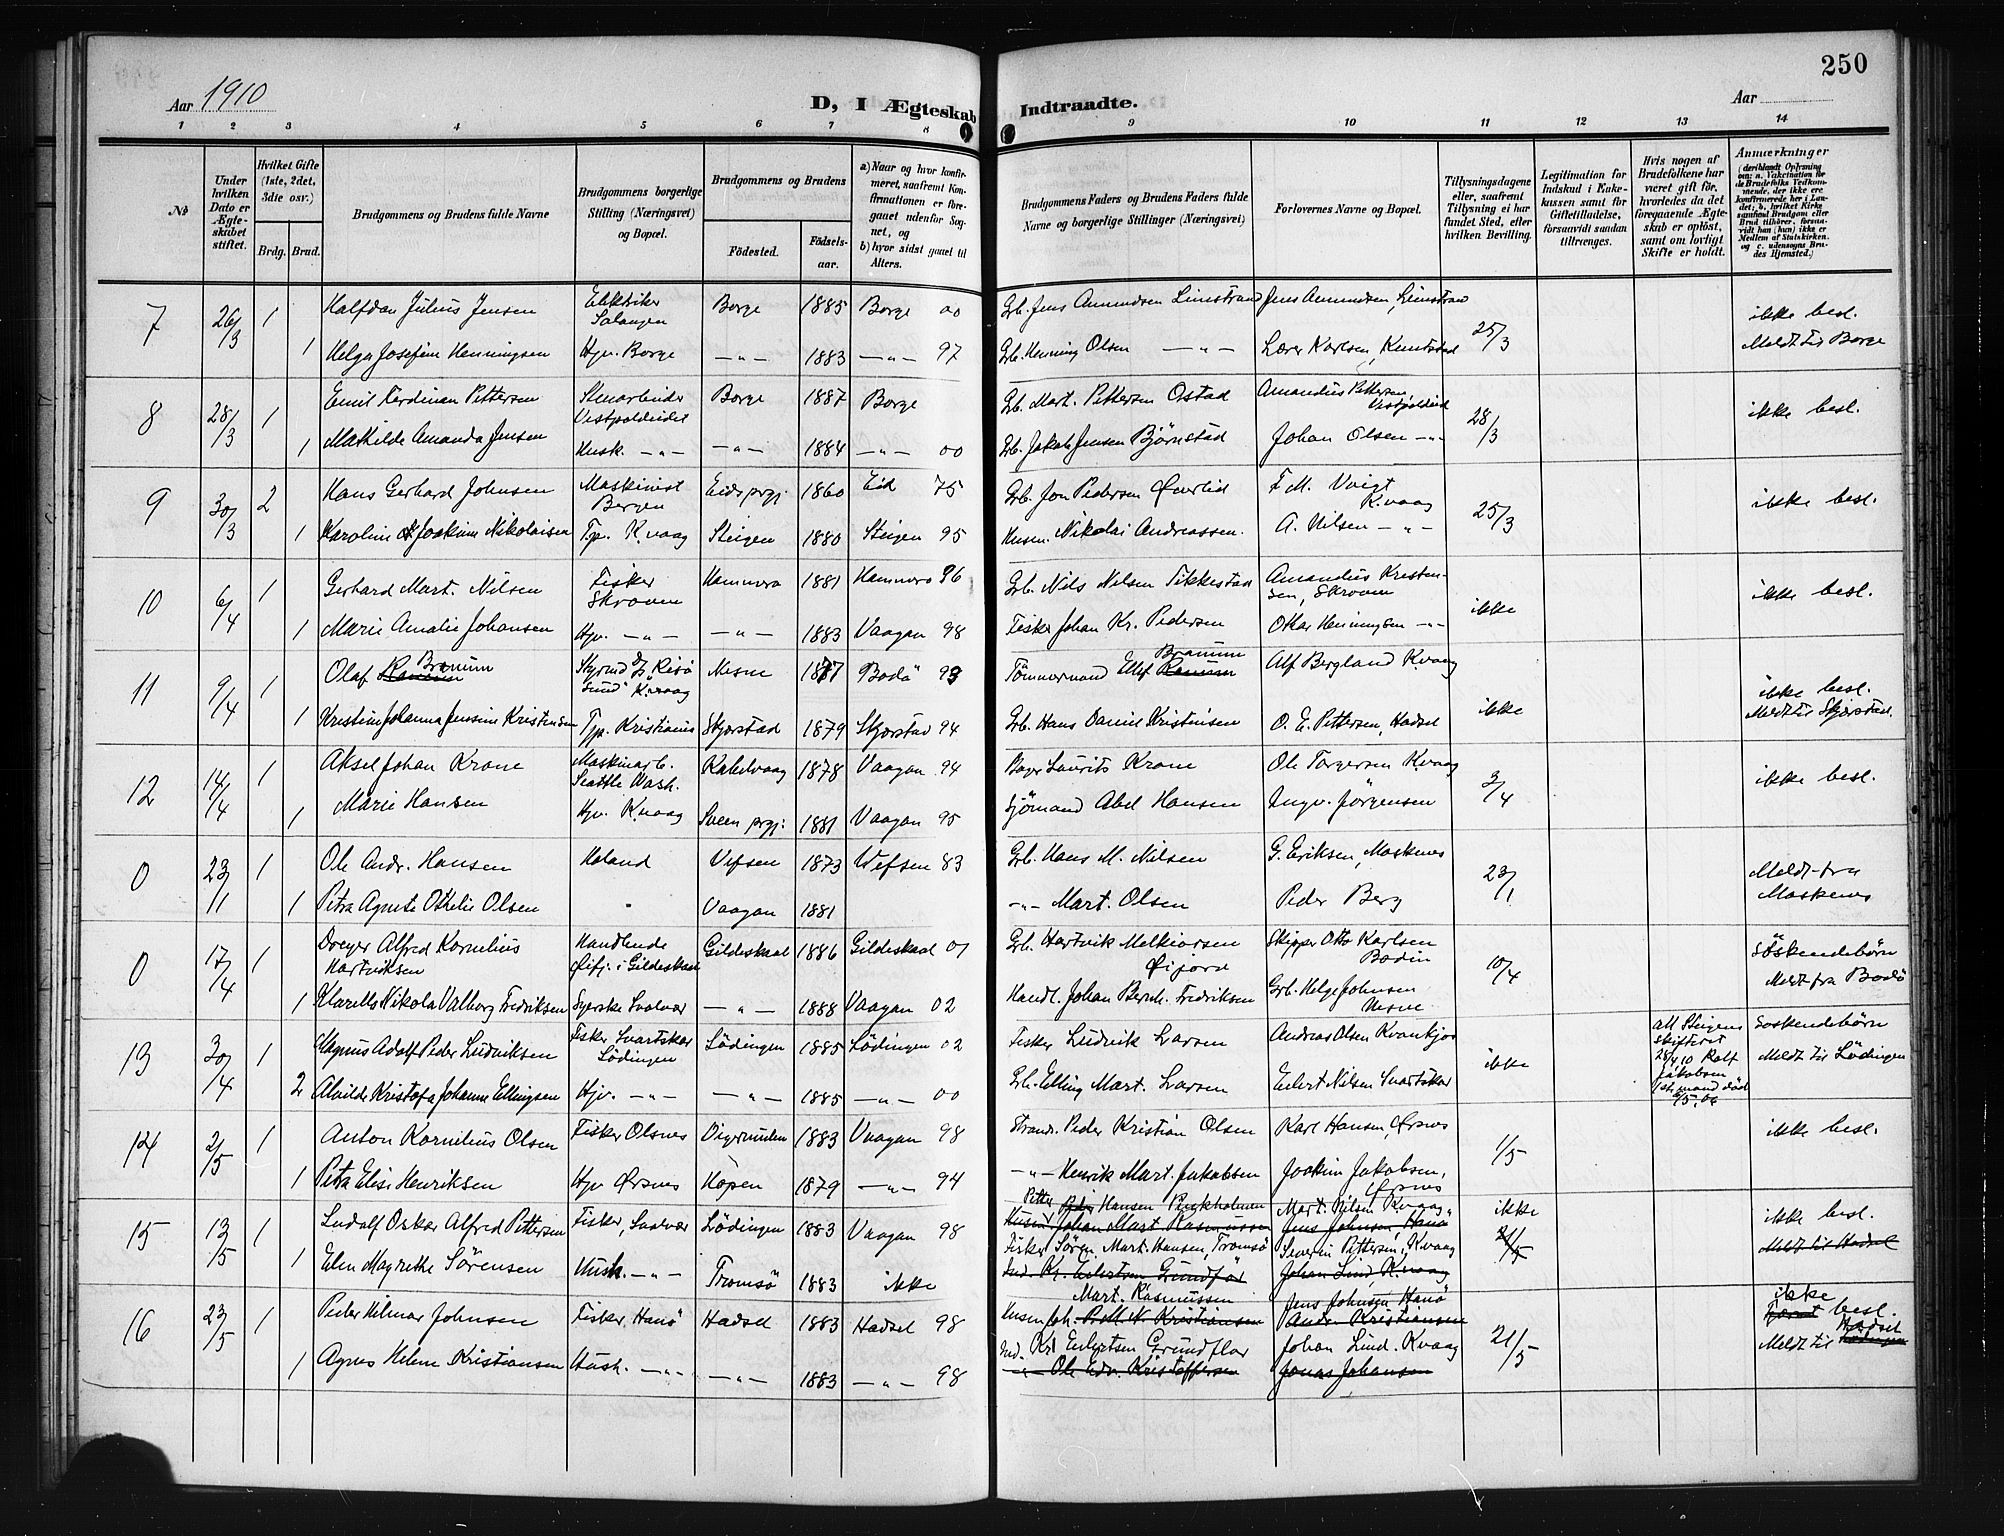 250
Aar 1910
D, I Ægteskab Indtraadte.
Aar
1 2 3 4 5 6 7 8 9 10 11 12 13 14
No
Under hvilken Dato er Ægteskabet stiftet.
Hvilket Gifte (1ste, 2det, 3die osv.)
Brdg. Brud.
Brudgommens og Brudens fulde Navne
Brudgommens borgerlige Stilling (Næringsvei) og Bopæl.
Brudgommens og Brudens
Födested.
Födselsaar.
a) Naar og hvor konfirmeret, saafremt Konfirmationen er foregaaet udenfor Sognet, og
b) hvor sidst gaaet til Alters.
Brudgommens Faders og Brudens Faders fulde Navne og borgerlige Stillinger (Næringsvei)
Forlovernes Navne og Bopæl.
Tillysningsdagene eller, saafremt Tillysning ei har fundet Sted, efter hvilken Bevilling.
Legitimation for Indskud i Enkekassen samt for Giftetilladelse, forsaavidt saadan tiltrænges.
Hvis nogen af Brudefolkene har været gift för, hvorledes da det foregaaende Ægteskab er oplöst, samt om lovligt Skifte er holdt.
Anmærkninger
7 26/3 1 Halfdan Julius Jensen Elektriker Salangen Borge 1885 Borge 00 Grb. Jens Amundsen Limstrand Jens Amundsen, Limstrand 25/3 ikke besl.
1 Helga Josefine Henningsen Hjv. Borge —"— 1883 —"— 97 Grb. Henning Olsen —"— Lærer Karlsen, Knutstad Meldt til Borge
8 28/3 1 Emil Ferdinan Pettersen Stenarbeider Vestpoldvidet Borge 1887 Borge Grb. Mart. Pettersen Ostad Amandus Pettersen, 28/3 ikke besl.
1 Mathilde Amanda Jensen Husk. —"— —"— 1884 —"— 00 Grb. Jakob Jensen Bjørnstad Johan Olsen —"—
9 30/3 2 Hans Gerhard Johnsen Maskinist Bergen Eids prgj. 1860 Eid 75 Grb. Jon Pedersen F. M. Voigt K.vaag 25/3 ikke besl.
1 Karoline Joakime Nikolaisen Tp. K.vaag Steigen 1880 Steigen 95 Husm. Nikolai Andreassen. A. Nilsen —"—
10 6/4 1 Gerhard Mart. Nilsen Fisker Skroven Hammerø 1881 Hammerø 96 Grb. Nils Nilsen Tikkestad Amandus Kristensen, Skroven ikke ikke besl.
1 Marie Amalie Johansen Hjv. —"— —"— 1883 Vaagan 98 Fisker Johan Kr. Pedersen Oskar Henningsen —"—
11 9/4 1 Olaf Bramm Styrmd D/S Risøsund K.vaag Nesne 1877 Bodö 93 Tömmermand Ellef Bramm Alf Bergland K.vaag ikke ikke besl.
1 Kristine Johanna Jensine Kristensen Tjp. Kristiania Skjerstad 1879 Skjerstad 94 Grb. Hans Daniel Kristensen O. E. Pettersen, Hadsel Meldt til Skjerstad.
12 14/4 1 Aksel Johan Krane Maskinarb. Seattle Wash. Kabelvaag 1878 Vaagan 94 Bager Laurits Krane Ole Torgersen K.vaag 3/4 ikke besl.
1 Marie Hansen Hjv. K.vaag 1881 Vaagan 95 Sjömand Abel Hansen Ingv. Jörgensen
0 23/11 1 Ole Andr. Hansen Holand Vefsen 1873 Vefsen 83 Grb. Hans M. Nilsen G. Eriksen, Moskenes 23/1 Meldt fra Moskenes
1 Petra Agnete Othelie Olsen " Vaagan 1881 —"— Mart. Olsen Peder Berg
0 17/4 1 Dreyer Alfred Kornelius Hartviksen Handlende Øifj. i Gildeskaal Gildeskaal 1886 Gildeskaal 01 Grb. Hartvik Melkiorsen Øifjord Skipper Otto Karlsen Bodin 10/4 Söskendebörn
1 Klarella Nikola Valborg Fredriksen Syerske Svolvær —"— 1888 Vaagan 02 Handl. Johan Bernh. Fredriksen Grb. Helge Johnsen Meldt fra Bodö
13 30/4 1 Magnus Adolf Peder Ludviksen Fisker Svartskar Lödingen Lödingen 1885 Lödingen 02 Fisker Ludvik Larsen Andreas Olsen Kvankjos ikke att Steigens skifteret 28/4 10 Rolf Jakobsen 1ste mand död Soskendebörn
2 Alvilde Kristofa Johanne Ellingsen Hjv. —"— —"— 1885 —"— 00 Grb. Elling Mart. Larsen Edvert Nilsen Svartskar Meldt til Lödingen
14 2/5 1 Anton Kornelius Olsen Fisker Olsnes Digermulen 1883 Vaagan 98 Strands. Peder Kristian Olsen Karl Hansen, Ørsnes 1/5 ikke besl.
1 Petra Elise Henriksen Hjv Ørsnes Hopen 1879 —"— 94 —"— Henrik Mart. Jakobsen Joakim Jakobsen, Ørsnes
15 13/5 1 Ludolf Oskar Alfred Pettersen Fisker, Svolvær Lödingen 1883 Vaagan 98 Petter Hansen Mart. Nilsen K.vaag ikke ikke besl.
Husm. Johan Mart Rasmussen Jens Johnsen, Hanö
1 Elen Magrethe Sörensen Husk. —"— Tromsö 1883 ikke Fisker Sören Mart. Hansen, Tromsö Severin Pettersen, K.vaag 21/5 Meldt til Hadsel
Ind. Kr. Eilertsen Grundför Johan Lind K.vaag
16 23/5 1 Peder Hilmar Johnsen Fisker, Hanö Hadsel 1883 Hadsel 98 Mart. Rasmussen Jens Johnsen Hanö 21/5 ikke besl.
Husm Joh. P. M. N. Kristiansen Andr. Kristiansen
1 Agnes Helene Kristiansen Hush. —"— —"— 1883 —"— 98 Ind. Kr. Eilertsen Grundför Johan Lind. K.vaag Meldt til Hadsel
—"— Ole Edv. Kristoffersen Jonas Johansen